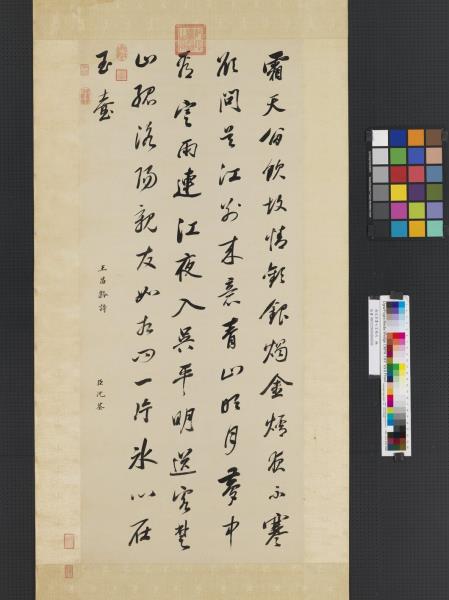 霜天留飲故情歡銀燭金爐夜不寒
欲問吳江別來意青山明月夢中
看寒雨連江夜入吳平明送客楚
山孤洛陽親友如相問一片冰心在
玉壺
王昌齡詩
臣沈荃